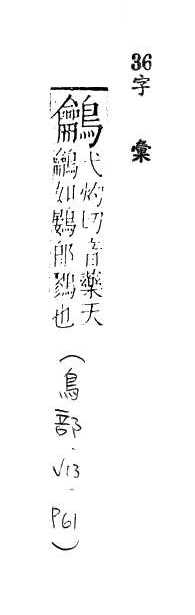 36字彙
鸙
弋灼切音藥天
鸙如鷃郎鷚也
(鳥部.V13.P61)